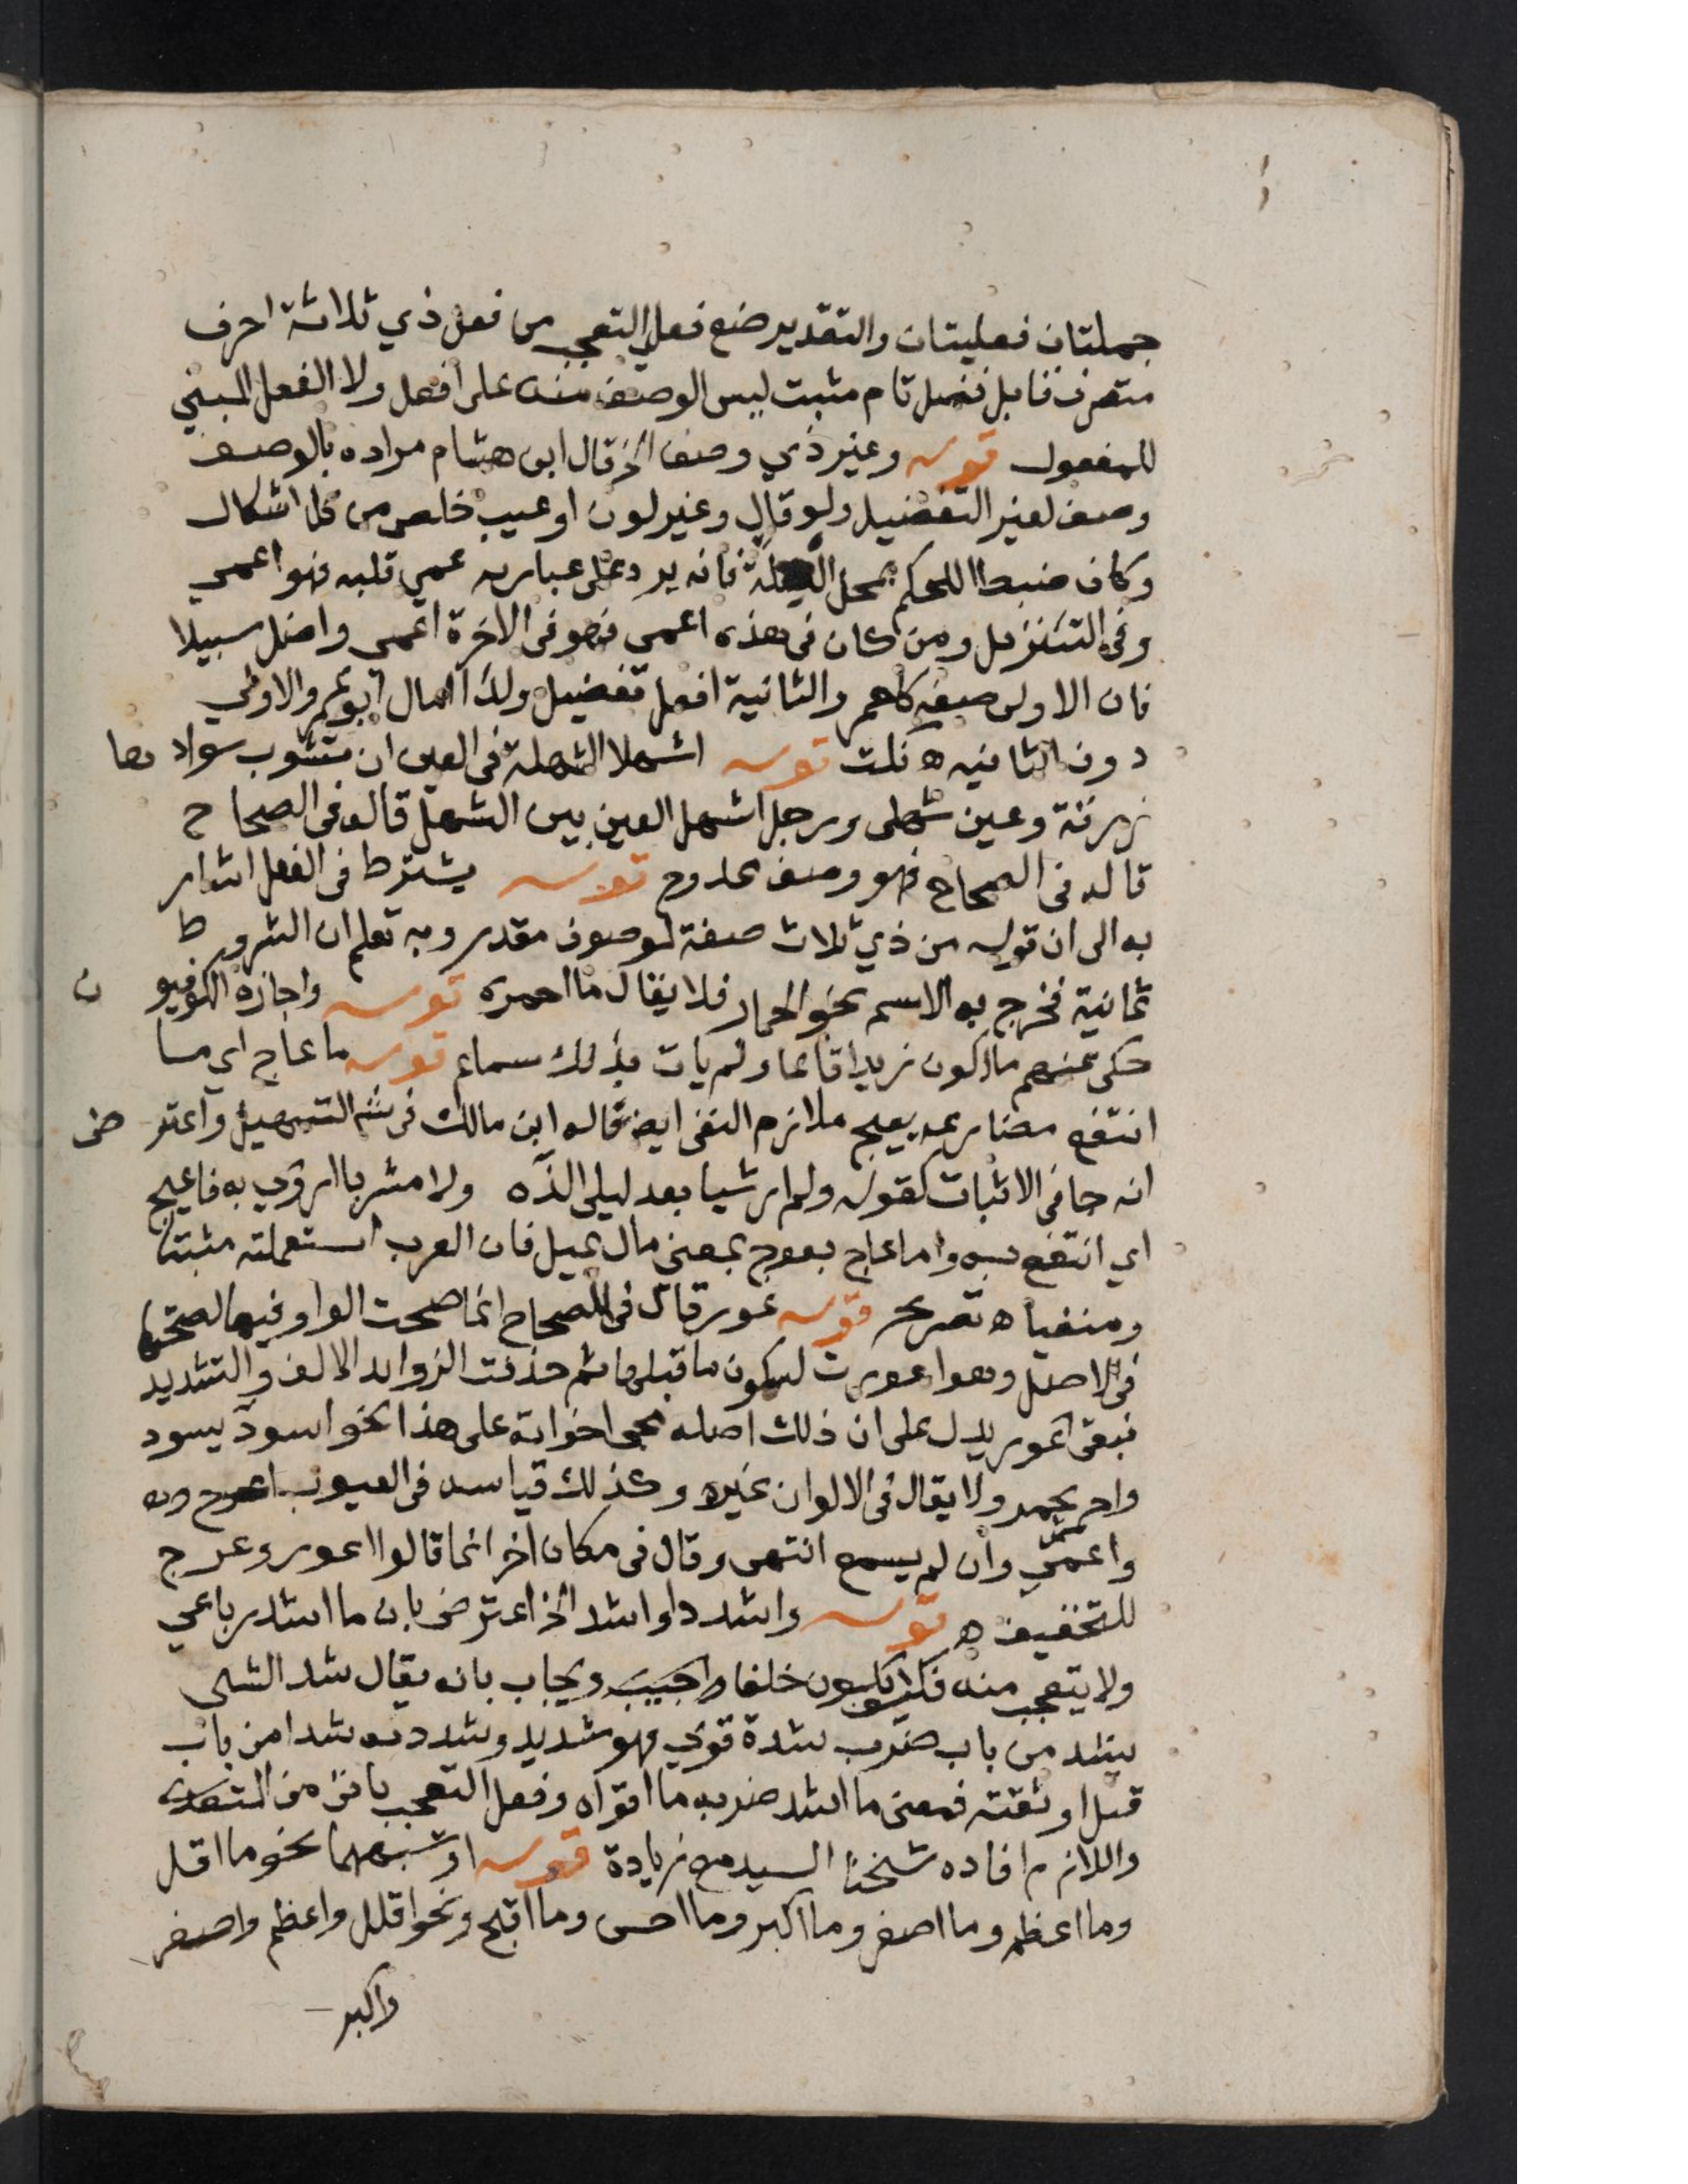 جملتان فعليتان والتقدير صغ فعلي التعجب من فعل ذي ثلاثة احرف
متصرف قابل فضل تام مثبت ليس الوصف منه على افعل ولا الفعل المبني
للمفعول قوله وغير ذي وصف الخ قال ابن هشام مراده بالوصف
وصف لغير التفضيل ولو قال وغير لون او عيب خلص من كل اشكال
وكان ضبطا للحكم بمحل العلة فانه يرد على عبارته عمي قلبه فهو اعمى
وفي التنزيل ومن كان في هذه اعمى فهو في الاخرة اعمى واضل سبيلا
فان الاولى صفة كاحمر والثانية افعل تفضيل ولذا امال ابو عمرو الاولى
دون الثانيه ه نكت قوله اشهلا الشهلة في العين ان يشوب سوادها
زرقة وعين شهلى ورجل اشهل العين بين الشهل قاله في الصحاح
قاله في الصحاح فهو وصف ممدوح قوله يشترط في الفعل اشار
به الى ان قوله من ذي ثلاث صفة لموصوف مقدر وبه تعلم ان الشروط
ثمانية فخرج به الاسم نحو الحمار فلا يقال ما احمره قوله واجازه الكوفيون
حكى عنهم ما اكون زيدا قائما ولم يات بذلك سماع قوله ما عاج اي ما
انتفع مضارعه يعيج ملازم النفي ايضا قاله ابن مالك في شرح التسهيل واعترض
انه جا في الاثبات كقوله ولم ار شيا بعد ليلى الذه ولا مشربا اروى به فاعيج
اي انتفع به واما عاج يعوج بمعنى مال يميل فان العرب استعملته مثبتا
ومنفيا ه تصريح قوله عور قال في الصحاح انما صحت الواو فيها لصحتها
في الاصل وهو اعورت لسكون ما قبلها ثم حذفت الزوايد الالف والتشديد
فبقي عور يدل على ان ذلك اصله مجي اخواته على هذا نحو اسود يسود
واحمر يحمر ولا يقال في الالوان غيره وكذلك قياسه في العيوب اعرج
واعمى وان لم يسمع انتهى وقال في مكان اخر انما قالوا اعور وعرج
للتخفيف ه قوله واشدد او اشد الخ اعترض بان ما اشد رباعي
ولا يتعجب منه فكيف يكون خلفا واجيب ويجاب بانه يقال شد الشى
يشد من باب ضرب شدة قوي فهو شديد وشددته شدا من باب
قتل اوثقته فمعنى ما اشد ضربه ما اقواه وفعل التعجب ياتي من المتعدي
واللازم افاده شيخنا السيد مع زيادة قوله او شبههما نحو ما اقل
وما اعظم وما اصغر وما اكبر وما احسن وما اقبح ونحو اقلل واعظم واصغر
واكبر